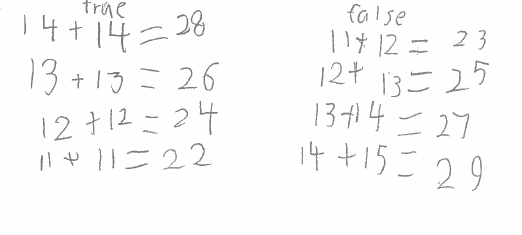 true
14 + 14 = 28
13 + 13 = 26
12 + 12 = 24
11 + 11 = 22
false
11 + 12 = 23
12 + 13 = 25
13 + 14 = 27
14 + 15 = 29